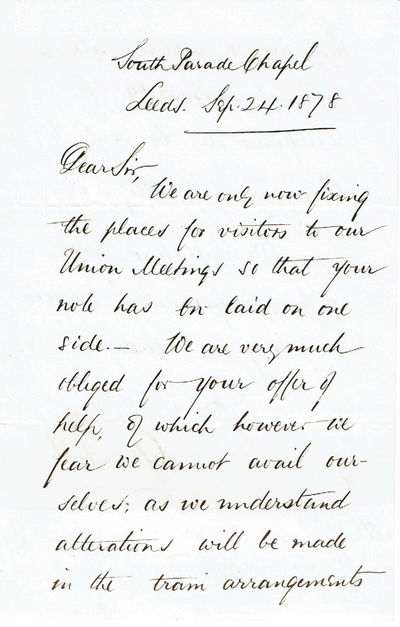 South Parade Chapel
Leeds. Sep. 24. 1878
Dear Sir,
We are only now fixing
the places for visitors to our
Union Meetings so that your
note has bn laid on one
side. — We are very much
obliged for your offer of
help, of which however we
fear we cannot avail our-
selves; as we understand
alterations will be made
in the train arrangements